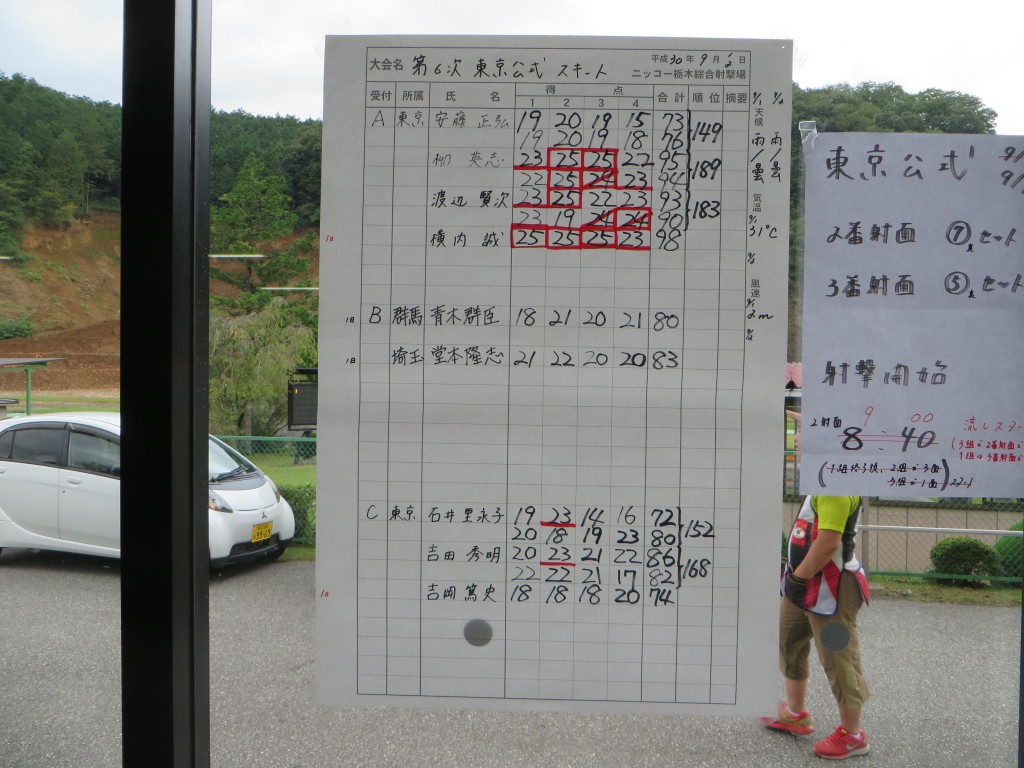 平成30年9月2日
大会名 第6次 東京公式 スキート ニッコー栃木綜合射撃場
受付 所属 氏名 得点 1 2 3 4 合計 順位 摘要
A 東京 安藤 正弘 19 20 19 15 73
19 20 19 18 76 149
柳 英志 23 25 25 22 95
22 25 24 23 94 189
渡辺 賢次 23 25 22 23 93
23 19 24 24 90 183
1日 横内 誠 25 25 25 23 98
1日 B 群馬 青木群臣 18 21 20 21 80
1日 埼玉 堂本隆志 21 22 20 20 83
C 東京 石井里永子 19 23 14 16 72
20 18 19 23 80 152
吉田 秀明 20 23 21 22 86
22 22 21 17 82 168
1日 吉岡 篤史 18 18 18 20 74
9/1 9/2
天候
雨 雨
曇 曇
気温
9/1
31℃
9/2
風速
9/1
2m
9/2
東京公式 9/
9/
2番射面 ⑦ セット
3番射面 ⑤ セット
射撃開始
2射面 9 00
8:40
流しスター